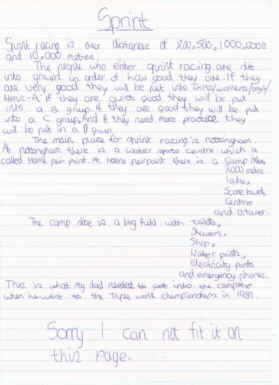 Sprint
Sprint racing is over distances of 200, 500, 1,000, 2000
and 10,000 metres.
The people who enter sprint racing are put
into groups in order of how good they are. If they
are very good they will be put into
A. If they are quite good they will be put
into a B group. If they are good they will be put
into a C group. And if they need more practice they
will be put in a D group.
The main place for sprint racing is nottingham.
At nottingham there is a water sports centre which is
called Holme pier point. At Holme pierpoint there is a Camp site,
2000 metre
lake,
Score board,
Centre
and a tower.
The camp site is a big field with toilets,
Showers,
Shop,
Water points,
electricity points
and emergency phones.
This is what my dad needed to put into the computer
when he went to the world championships in 1981.
Sorry I can not fit it on
this page.